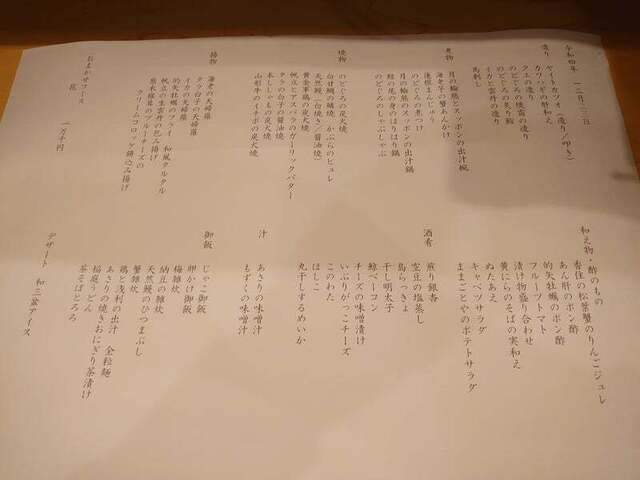 令和四年 一二月二三日
造り
ヤイトカツオ（造り／叩き）
カワハギの肝和え
クエの造り
のどぐろの焼霜の造り
のどぐろの炙り鮨
イカと雲丹の造り
馬刺し
煮物
月の輪熊とスッポンの出汁椀
海老芋の蟹あんかけ
蓮根まんじゅう
のどぐろの煮つけ
月の輪熊のスッポンの出汁鍋
鯨の尾の身のはりはり鍋
のどぐろのしゃぶしゃぶ
焼物
のどぐろの炭火焼
白甘鯛の鱗焼 かぶらのピュレ
天然鰻（白焼き／醤油焼）
黄金軍鶏の炭火焼
帆立とアスパラのガーリックバター
タラ白子の醤油焼
本ししゃもの炭火焼
山形牛のイチボの炭火焼
揚物
海老の天婦羅
タラ白子の天婦羅
イカの天婦羅
的矢牡蠣のフライ 和風タルタル
帆立の生雲丹の包み揚げ
原木椎茸のブルーチーズの
クリームコロッケ餅込み揚げ
おまかせコース
花 一万千円
和え物・酢のもの
香住の松葉蟹のりんごジュレ
あん肝のポン酢
的矢牡蠣のポン酢
フルーツトマト
漬け物盛り合わせ
黄にらのそばの実和え
ぬたあえ
キャベツサラダ
ままごとやのポテトサラダ
酒肴
煎り銀杏
空豆の塩蒸し
島らっきょ
干し明太子
鯨ベーコン
チーズの味噌漬け
いぶりがっこチーズ
このわた
ほしこ
丸干しするめいか
汁
あさりの味噌汁
もずくの味噌汁
御飯
じゃこ御飯
卵かけ御飯
梅雑炊
納豆の雑炊
天然鰻のひつまぶし
蟹雑炊
鶏と浅利の出汁 全粒麺
あさりの焼きおにぎり茶漬け
稲庭うどん
茶そばとろろ
デザート 和三盆アイス